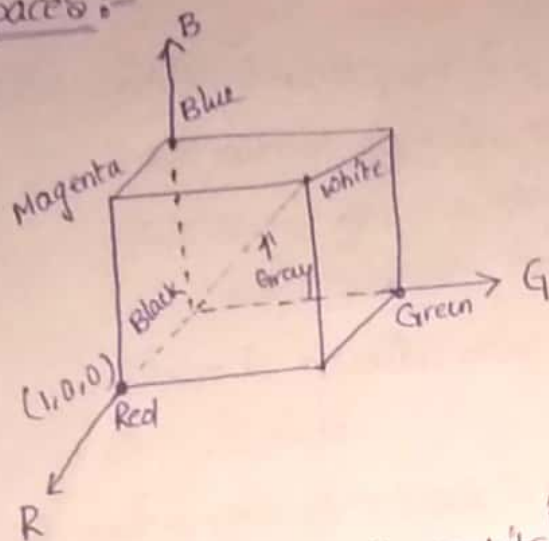 B
Blue
Magenta
White
Gray
Black
G
Green
(1,0,0)
Red
R